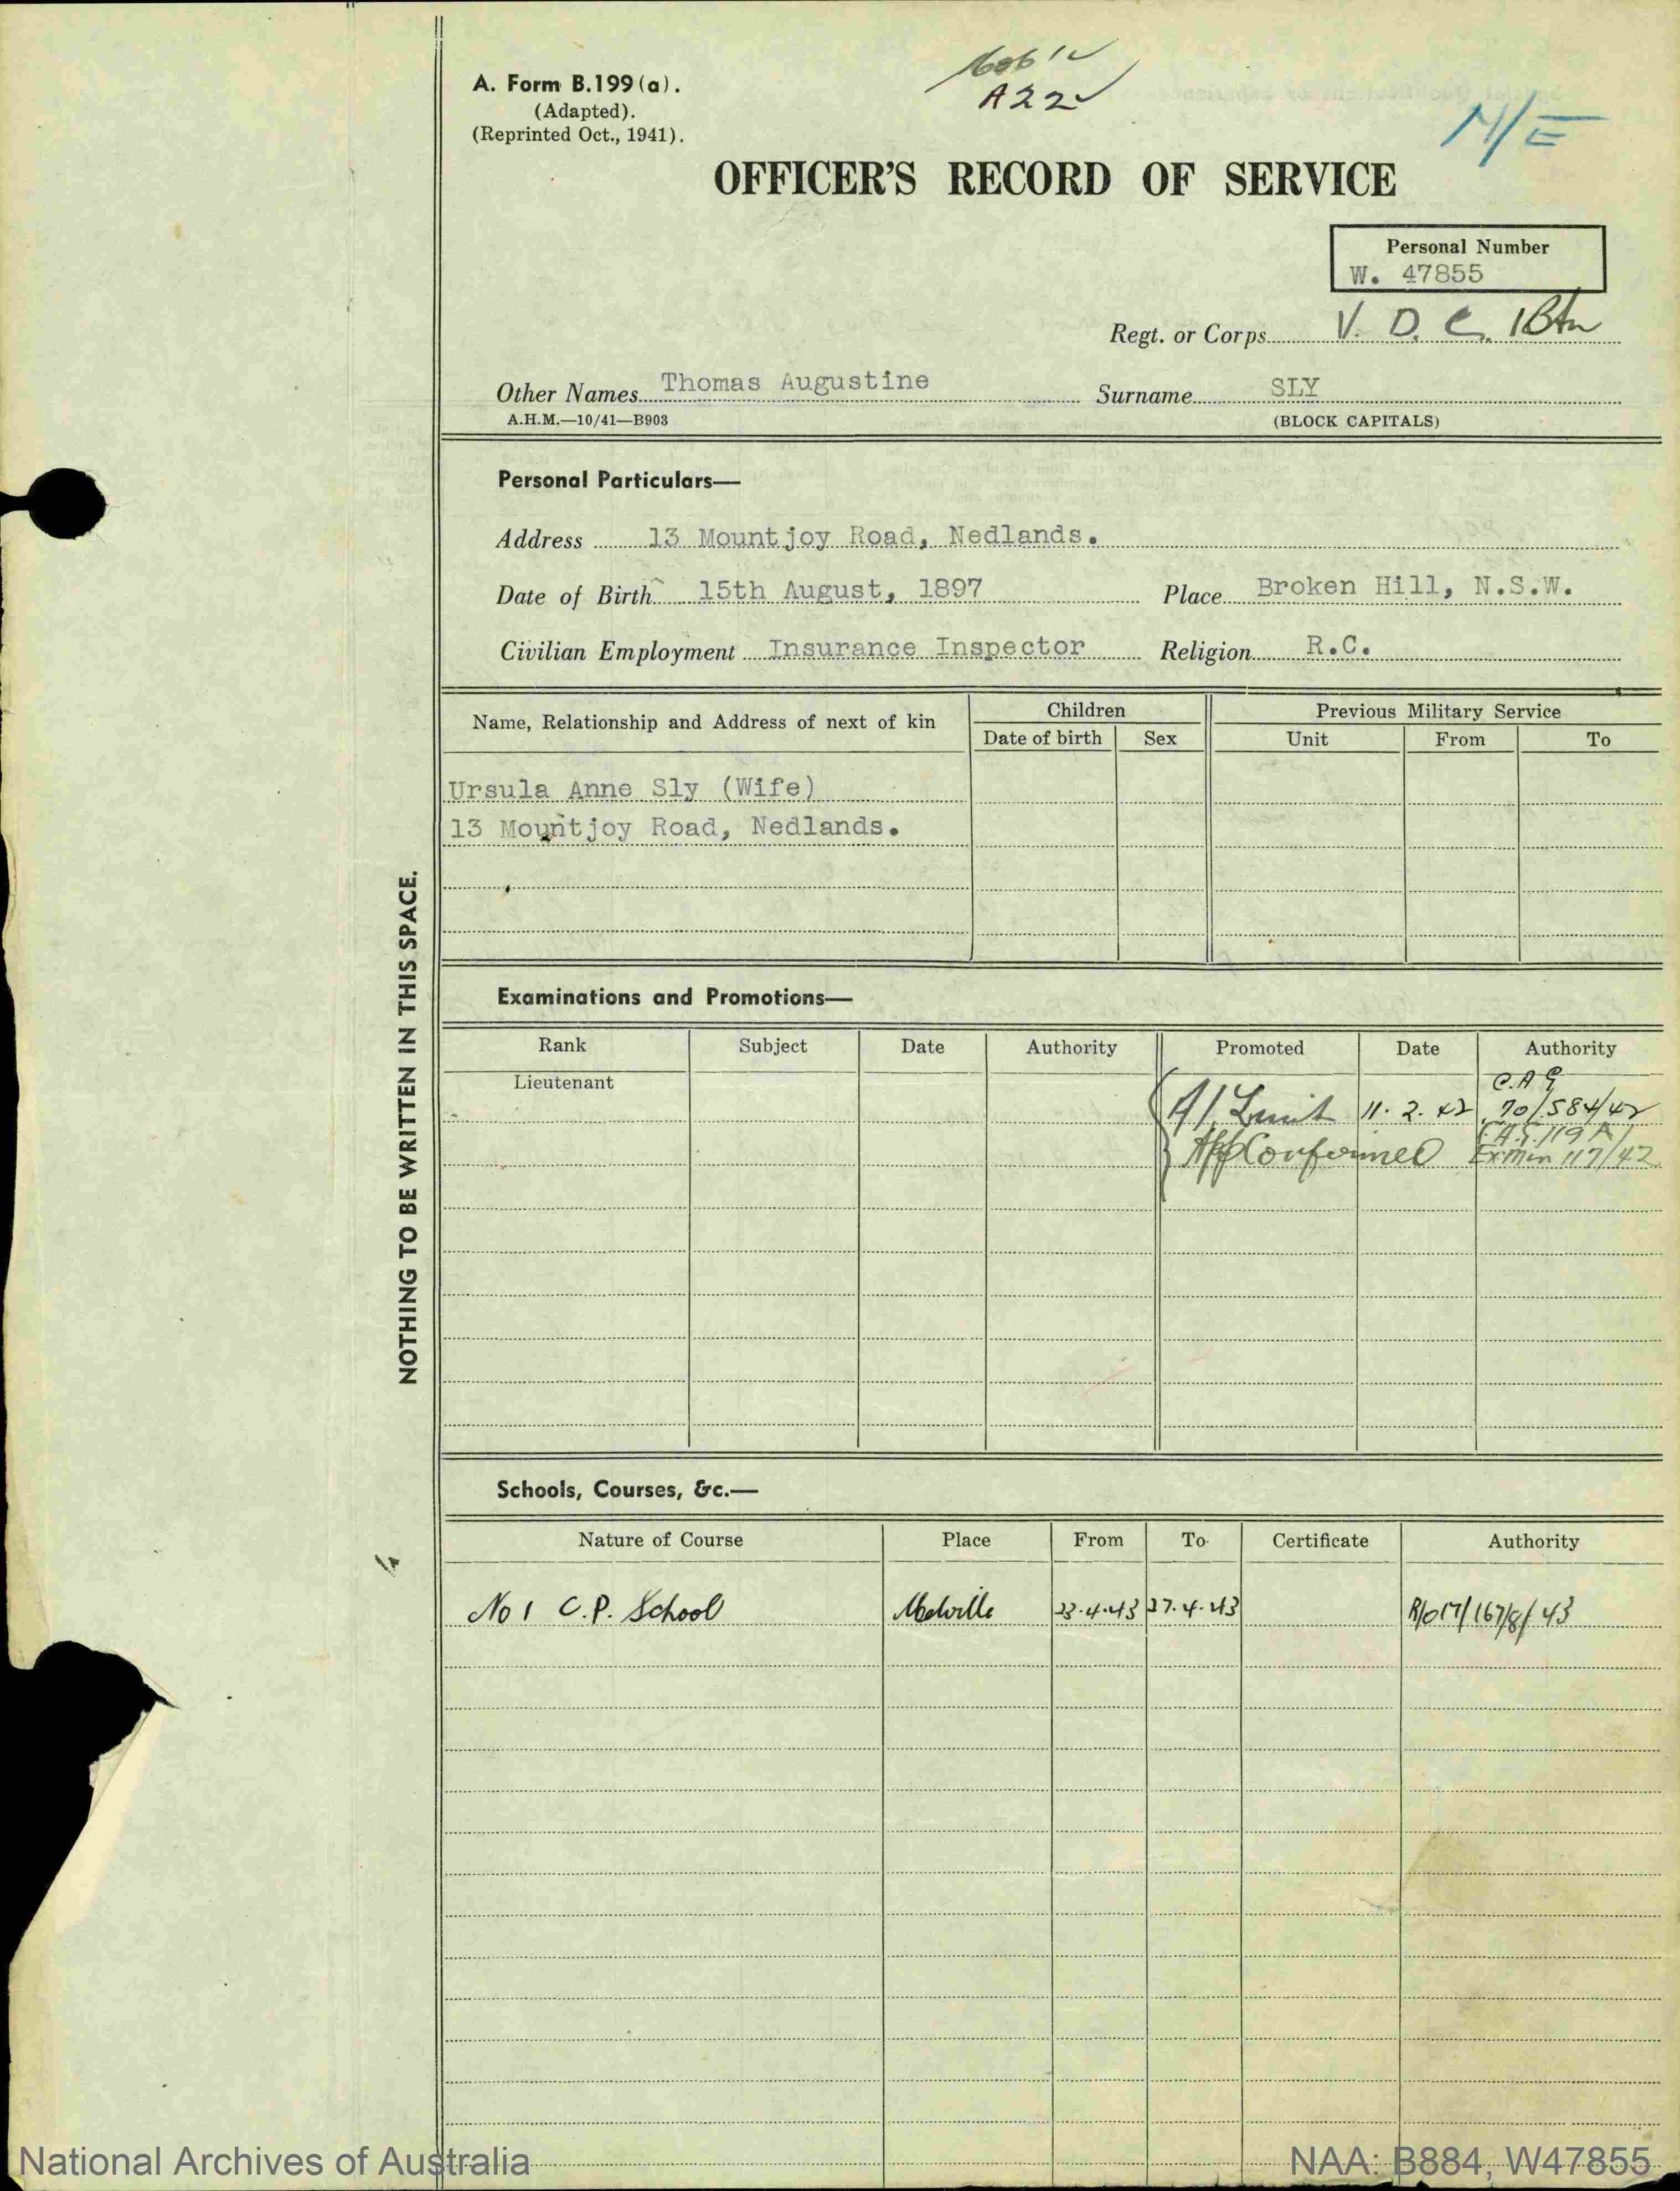 A. Form B.199 (a).
(Adapted).
(Reprinted Oct., 1941).
A22
M/E
OFFICER'S RECORD OF SERVICE
Personal Number
W. 47855
Regt. or Corps V. D. C. 1 Btn
Other Names Thomas Augustine Surname SLY
A.H.M.—10/41—B903 (BLOCK CAPITALS)
Personal Particulars—
Address 13 Mountjoy Road, Nedlands.
Date of Birth 15th August, 1897 Place Broken Hill, N.S.W.
Civilian Employment Insurance Inspector Religion R.C.
Name, Relationship and Address of next of kin Children Previous Military Service
Date of birth Sex Unit From To
Ursula Anne Sly (Wife)
13 Mountjoy Road, Nedlands.
NOTHING TO BE WRITTEN IN THIS SPACE.
Examinations and Promotions—
Rank Subject Date Authority Promoted Date Authority
Lieutenant C.A.G
A/ Lieut 11. 2. 42 70/584/42
App Confirmed Ex Min 117/42
Schools, Courses, &c.—
Nature of Course Place From To Certificate Authority
No 1 C.P. School Melville 23.4.43 27.4.43 R/O 17/167/8/43
National Archives of Australia NAA: B884, W47855